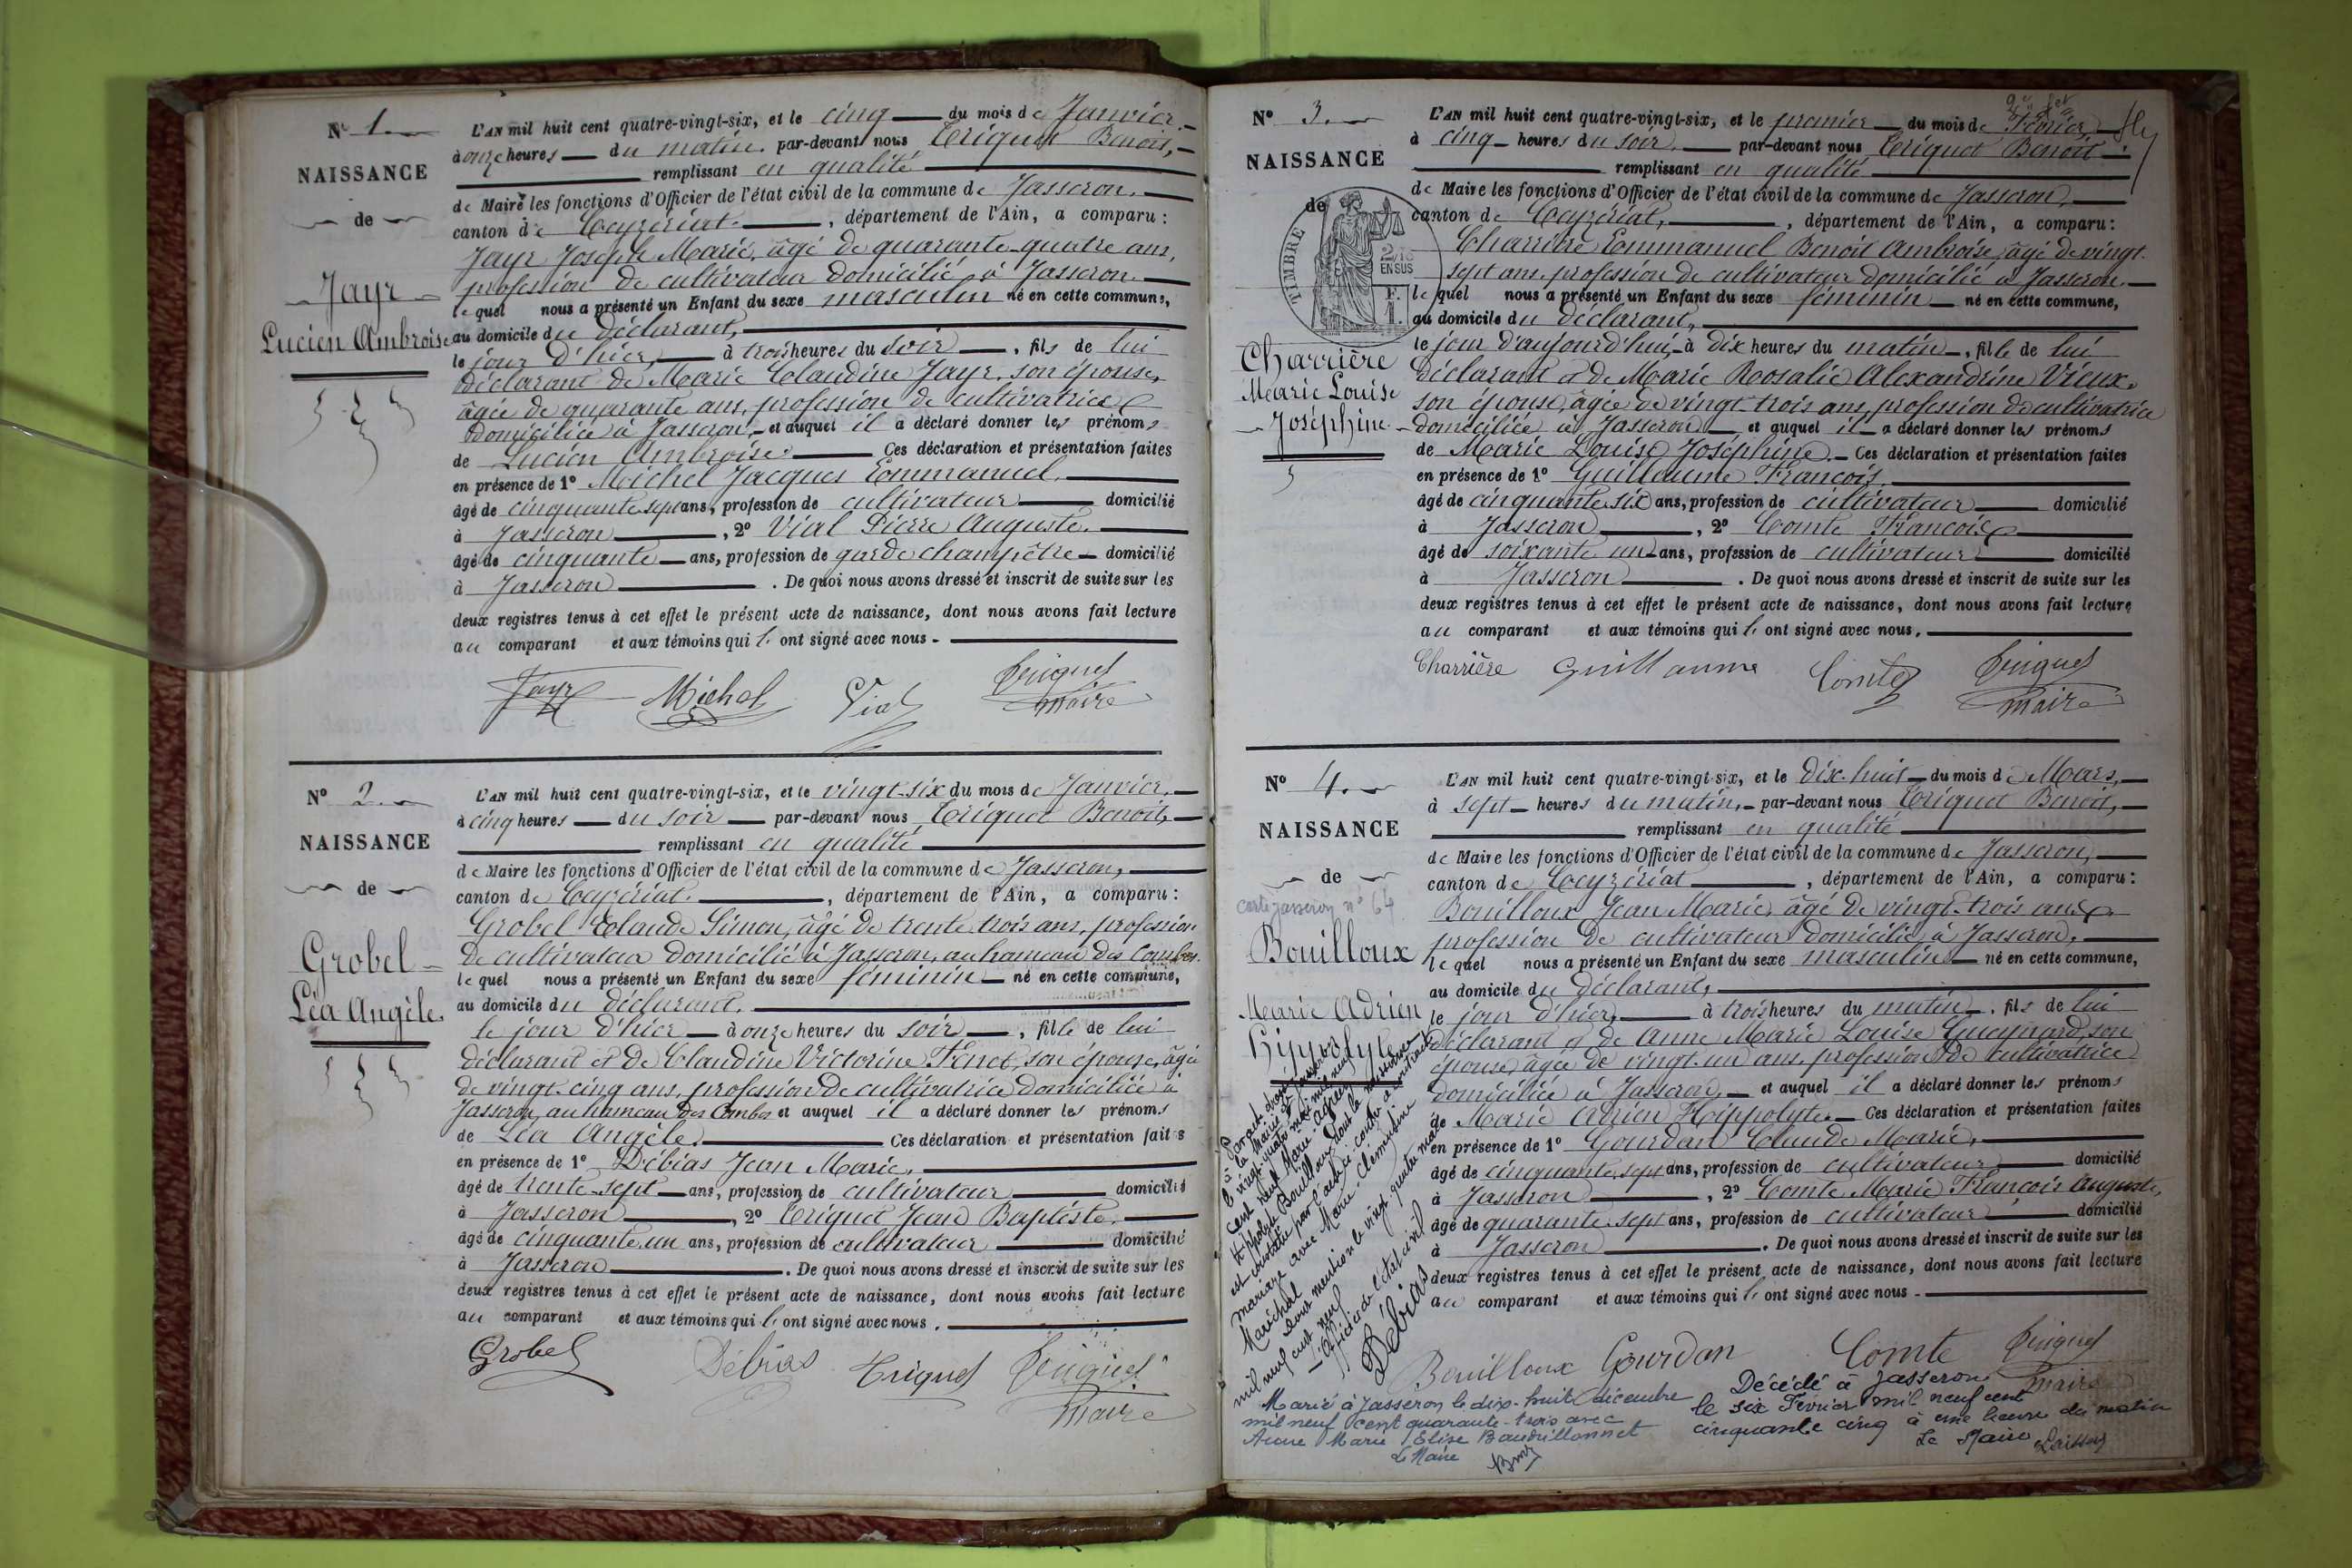 N° 1.
NAISSANCE
de
Jayr
Lucien Ambroise
L'AN mil huit cent quatre-vingt-six, et le cinq du mois de Janvier.
à onze heures du matin. par-devant nous Triquet Benoit,
remplissant en qualité
de Maire les fonctions d'Officier de l'état civil de la commune de Jasseron.
canton de Ceyzériat. , département de l'Ain, a comparu :
Jayr Joseph Marie, âgé de quarante-quatre ans,
profession de cultivateur domicilié à Jasseron.
lequel nous a présenté un Enfant du sexe masculin né en cette commune,
au domicile du déclarant,
le jour d'hier, à trois heures du soir , fils de lui
déclarant de Marie Claudine Jayr, son épouse,
âgée de quarante ans, profession de cultivatrice
domiciliée à Jasseron, et auquel il a déclaré donner les prénoms
de Lucien Ambroise. Ces déclaration et présentation faites
en présence de 1° Michel Jacques Emmanuel.
âgé de cinquante sept ans, profession de cultivateur domicilié
à Jasseron , 2° Vial Pierre Auguste.
âgé de cinquante ans, profession de garde champêtre domicilié
à Jasseron . De quoi nous avons dressé et inscrit de suite sur les
deux registres tenus à cet effet le présent acte de naissance, dont nous avons fait lecture
au comparant et aux témoins qui l' ont signé avec nous.
Jayr Michel Vial Triquet
maire
N° 2.
NAISSANCE
de
Grobel
Léa Angèle.
L'AN mil huit cent quatre-vingt-six, et le vingt-six du mois de Janvier.
à cinq heures du soir par-devant nous Triquet Benoit,
remplissant en qualité
de Maire les fonctions d'Officier de l'état civil de la commune de Jasseron,
canton de Ceyzériat. , département de l'Ain, a comparu :
Grobel Claude Simon, âgé de trente trois ans, profession
de cultivateur domicilié à Jasseron, au hameau des Combes.
lequel nous a présenté un Enfant du sexe féminin né en cette commune,
au domicile du déclarant.
le jour d'hier à onze heures du soir , fille de lui
déclarant et de Claudine Victorine Fenet, son épouse, âgée
de vingt-cinq ans, profession de cultivatrice domiciliée à
Jasseron, au hameau des Combes et auquel il a déclaré donner les prénoms
de Léa Angèle. Ces déclaration et présentation faites
en présence de 1° Débias Jean Marie,
âgé de trente-sept ans, profession de cultivateur domicilié
à Jasseron , 2° Triquet Jean Baptiste.
âgé de cinquante un ans, profession de cultivateur domicilié
à Jasseron . De quoi nous avons dressé et inscrit de suite sur les
deux registres tenus à cet effet le présent acte de naissance, dont nous avons fait lecture
au comparant et aux témoins qui l' ont signé avec nous.
Grobel Débias Triquet Triquet
maire
N° 3.
NAISSANCE
de
TIMBRE
2/10
EN SUS
Charrière
Marie Louise
Joséphine.
L'AN mil huit cent quatre-vingt-six, et le premier du mois de Février,
à cinq heures du soir, par-devant nous Triquet Benoit
remplissant en qualité
de Maire les fonctions d'Officier de l'état civil de la commune de Jasseron,
canton de Ceyzériat, , département de l'Ain, a comparu :
Charrière Emmanuel Benoit Ambroise, âgé de vingt-
sept ans, profession de cultivateur domicilié à Jasseron.
lequel nous a présenté un Enfant du sexe féminin né en cette commune,
au domicile du déclarant,
le jour d'aujourd'hui, à dix heures du matin , fille de lui
déclarant et de Marie Rosalie Alexandrine Vieux.
son épouse, âgée de vingt-trois ans, profession de cultivatrice
domiciliée à Jasseron et auquel il a déclaré donner les prénoms
de Marie Louise Joséphine. Ces déclaration et présentation faites
en présence de 1° Guillaume François.
âgé de cinquante six ans, profession de cultivateur domicilié
à Jasseron , 2° Comte François
âgé de soixante un ans, profession de cultivateur domicilié
à Jasseron . De quoi nous avons dressé et inscrit de suite sur les
deux registres tenus à cet effet le présent acte de naissance, dont nous avons fait lecture
au comparant et aux témoins qui l' ont signé avec nous,
Charrière Guillaume Comte Triquet
maire
N° 4.
NAISSANCE
de
carte jasseron n° 64
Bouilloux
Marie Adrien
Hippolyte
L'AN mil huit cent quatre-vingt-six, et le dix-huit du mois de Mars,
à sept heures du matin, par-devant nous Triquet Benoit,
remplissant en qualité
de Maire les fonctions d'Officier de l'état civil de la commune de Jasseron,
canton de Ceyzériat , département de l'Ain, a comparu :
Bouilloux Jean Marie, âgé de vingt-trois ans,
profession de cultivateur domicilié à Jasseron,
lequel nous a présenté un Enfant du sexe masculin né en cette commune,
au domicile du déclarant,
le jour d'hier, à trois heures du matin , fils de lui
déclarant et de Anne Marie Louise Gueynard, son
épouse, âgée de vingt-un ans, profession de cultivatrice
domiciliée à Jasseron, et auquel il a déclaré donner les prénoms
de Marie Adrien Hippolyte. Ces déclaration et présentation faites
en présence de 1° Gourdan Claude Marie,
âgé de cinquante sept ans, profession de cultivateur domicilié
à Jasseron , 2° Comte Marie François Auguste,
âgé de quarante-sept ans, profession de cultivateur domicilié
à Jasseron . De quoi nous avons dressé et inscrit de suite sur les
deux registres tenus à cet effet le présent acte de naissance, dont nous avons fait lecture
au comparant et aux témoins qui l' ont signé avec nous.
Bouilloux Gourdan Comte Triquet
maire
Par acte dressé
à la Mairie de
le vingt quatre mai mil neuf
cent neuf Marie Adrien
Hippolyte Bouilloux dont la naissance
est constatée par l'acte ci-contre a contracté
mariage avec Marie Clémentine
Maréchal
Dont mention le vingt quatre mai
mil neuf cent neuf
L'officier de l'état civil
Débias
Marié à Jasseron le dix-huit décembre
mil neuf cent quarante-trois avec
Anne Marie Elise Baudrillonnet
Le Maire
Décédé à Jasseron
le six Février mil neuf cent
cinquante cinq à une heure du matin
Le Maire